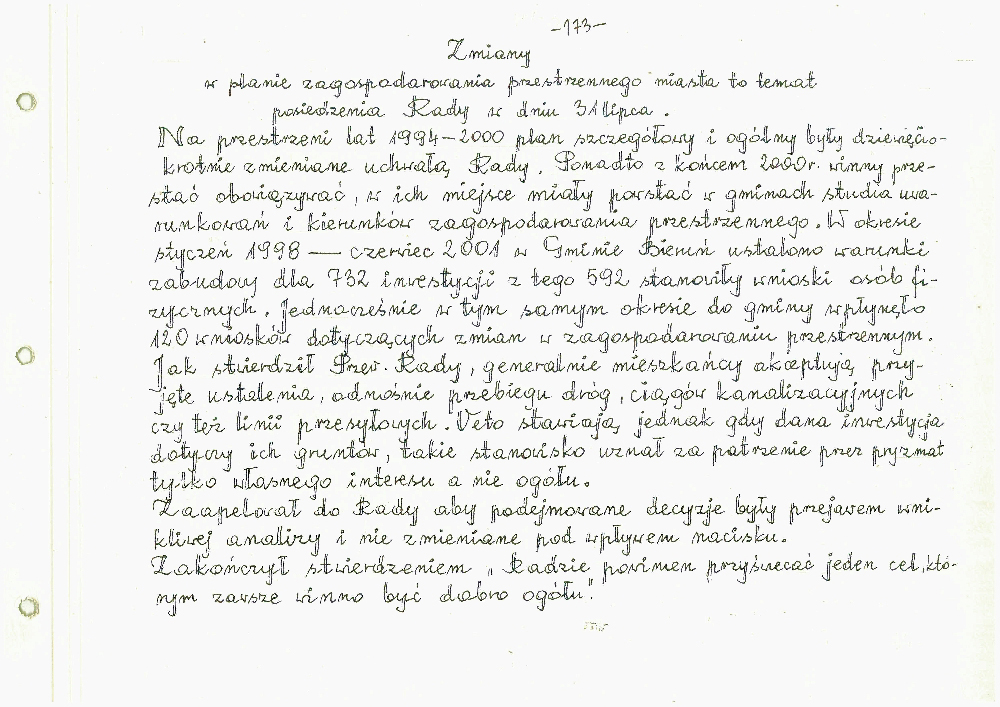 -173-
Zmiany
w planie zagospodarowania przestrzennego miasta to temat
posiedzenia Rady w dniu 31 lipca.
Na przestrzeni lat 1994-2000 plan szczegółowy i ogólny były dziewięcio-
krotnie zmieniane uchwałą Rady. Ponadto z końcem 2000r. winny prze-
stać obowiązywać, w ich miejsce miały powstać w gminach studia uwa-
runkowań i kierunków zagospodarowania przestrzennego. W okresie
styczeń 1998 — czerwiec 2001 w Gminie Bieruń ustalono warunki
zabudowy dla 732 inwestycji z tego 592 stanowiły wnioski osób fi-
zycznych. Jednocześnie w tym samym okresie do gminy wpłynęło
120 wniosków dotyczących zmian w zagospodarowaniu przestrzennym.
Jak stwierdził Przew. Rady, generalnie mieszkańcy akceptują przy-
jęte ustalenia, odnośnie przebiegu dróg, ciągów kanalizacyjnych
czy też linii przesyłowych. Veto stawiają jednak gdy dana inwestycja
dotyczy ich gruntów, takie stanowisko uznał za patrzenie przez pryzmat
tylko własnego interesu a nie ogółu.
Zaapelował do Rady aby podejmowane decyzje były przejawem wni-
kliwej analizy i nie zmieniane pod wpływem nacisku.
Zakończył stwierdzeniem „Radzie powinien przyświecać jeden cel, któ-
rym zawsze winno być dobro ogółu."